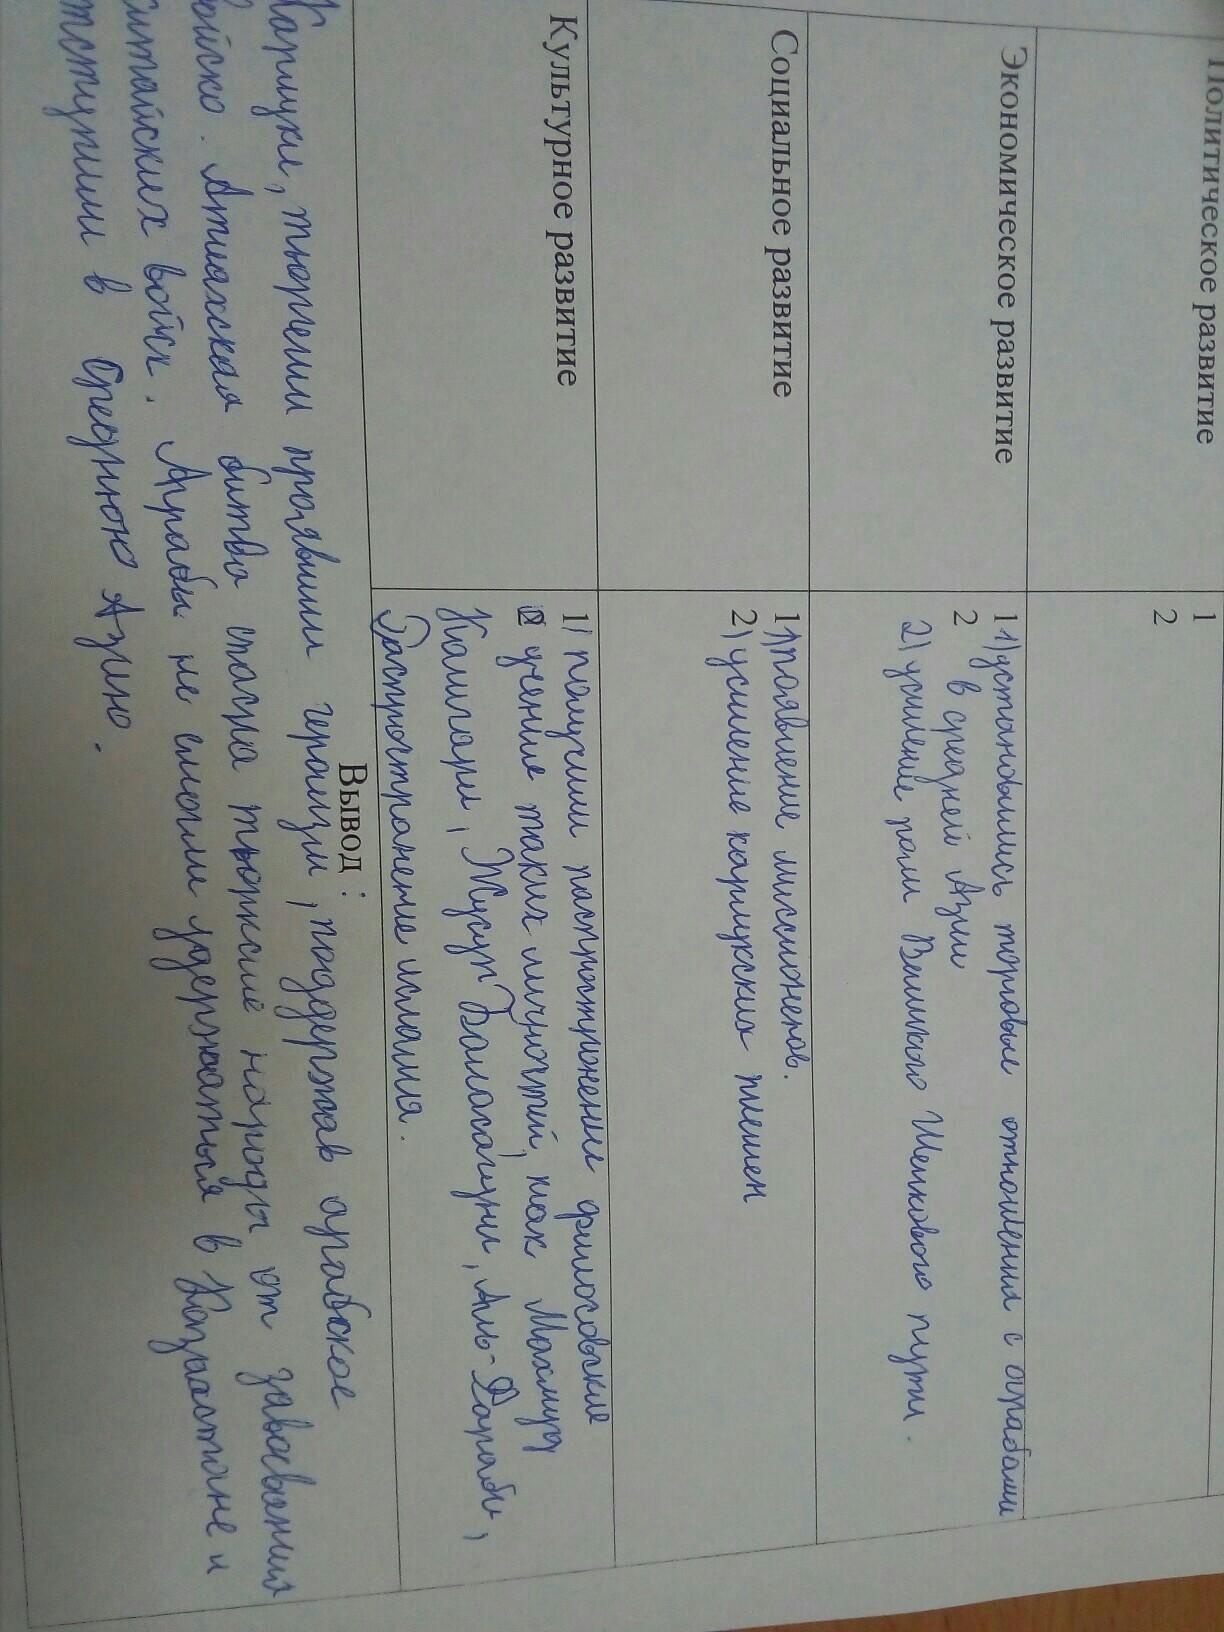 Политическое развитие
1
2
Экономическое развитие
1 1) установились торговые отношения с арабами
2 в средней Азии
2) усиление роли Великого Шелкового пути.
Социальное развитие
1 1) появление миссионеров.
2) усиление карлукских племен
Культурное развитие
1) получили распространения философские
учение таких личностей, как Махмуд
Кашгари, Жусуп Баласагуни, Аль-Фараби,
Распространение ислама.
Вывод :
Карлуки, тюргеши проявили героизм, поддержав арабское
войско. Атлахская битва спасла тюркские народы от завоевания
китайских войск. Арабы не смогли удержаться в Казахстане и
отступили в Среднюю Азию.